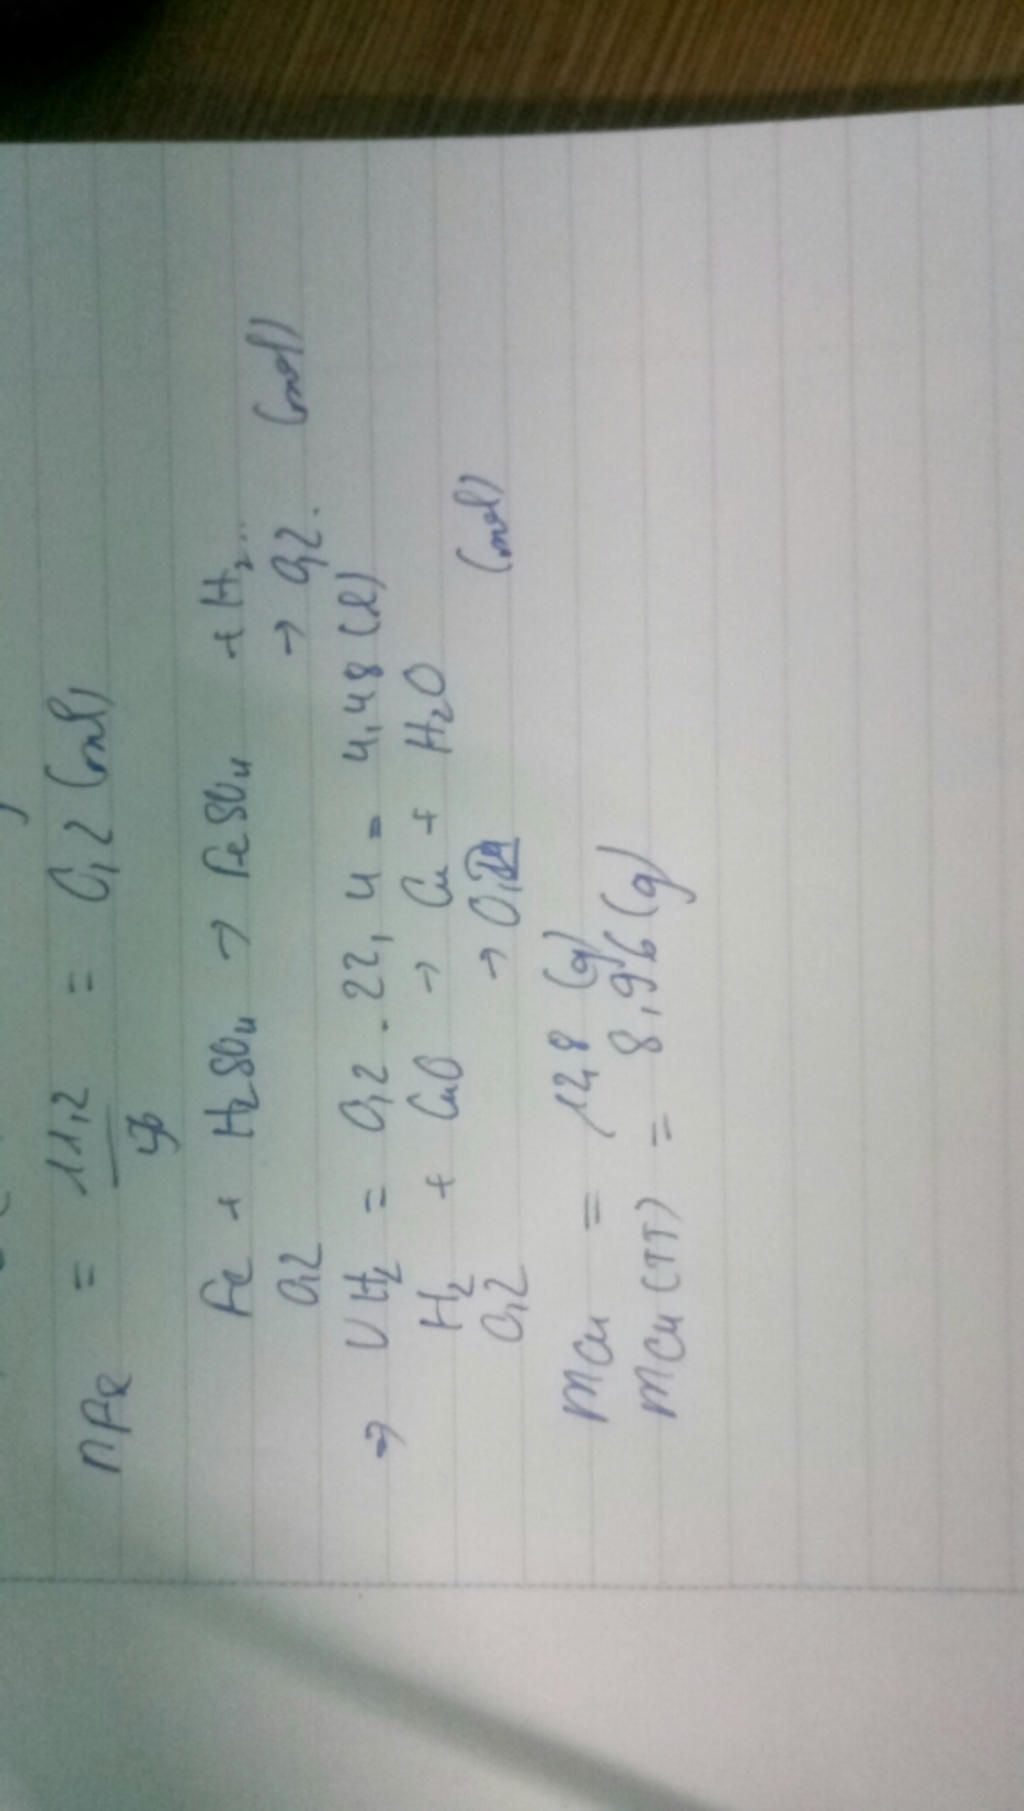 nFe = 11,2 / 56 = 0,2 (mol)
Fe + H2SO4 → FeSO4 + H2
0,2 → 0,2 (mol)
⇒ VH2 = 0,2 . 22,4 = 4,48 (l)
H2 + CuO → Cu + H2O
0,2 → 0,2 (mol)
mCu = 12,8 (g)
mCu (TT) = 8,96 (g)